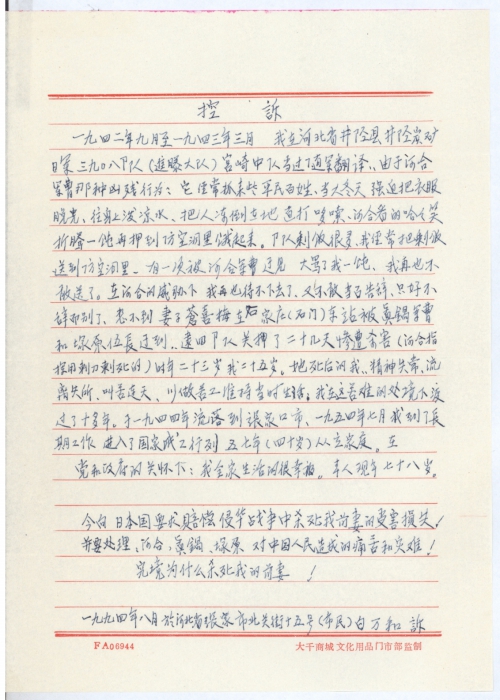 控 訴
一九四二年九月至一九四三年三月 我在河北省井陉县井陉炭矿
日軍三九〇八部队(進曝大队)宮崎中队当过随軍翻译、由于河合
軍曹那种凶残行为:它经常抓来些平民百姓、当人冬天 强迫把衣服
脱光、往身上泼凉水、把人冻倒在地 直打 河合看的哈哈笑
折腾一饨再押到防空洞里饿起来。部队剩饭很多、我经常把剩饭
送到防空洞里、有一次被河合軍曹迂见 大骂了我一饨、我再也不
敢送了。在河合的威胁下 我再也待不下去了、又不敢去告辞、只好不
辞而别了、想不到 妻子蒼喜梅在石家庄(石门)车站被眞鍋軍曹
和塚原伍長迂到、逮回部队关押了二十九天惨遭杀害(河合指
指用刺刀刺死的)时年二十三岁我二十五岁。她死后的我、精神失常、流
离失所、叫苦连天、以做苦工维持当时生活。我在这苦难的处境水渡
过了十多年。于一九四四年流落到張家口市、一九五四年七月我到了長
期工作 进入了国家职工行列 五七年(四十岁)从立家庭。在
党和政府的关怀下:我全家生活的很幸福。本人现年七十八岁。
今向日本国要求賠偿侵华战争中杀死我前妻的受害損失!
并要处理、河合、眞鍋、塚原 对中国人民造成的痛苦和災难!
究境为什么杀死我的前妻 !
一九九四年八月於河北省張家市北关街十五号(市民)白万和 訴
FA06944 大千商城文化用品门市部监制